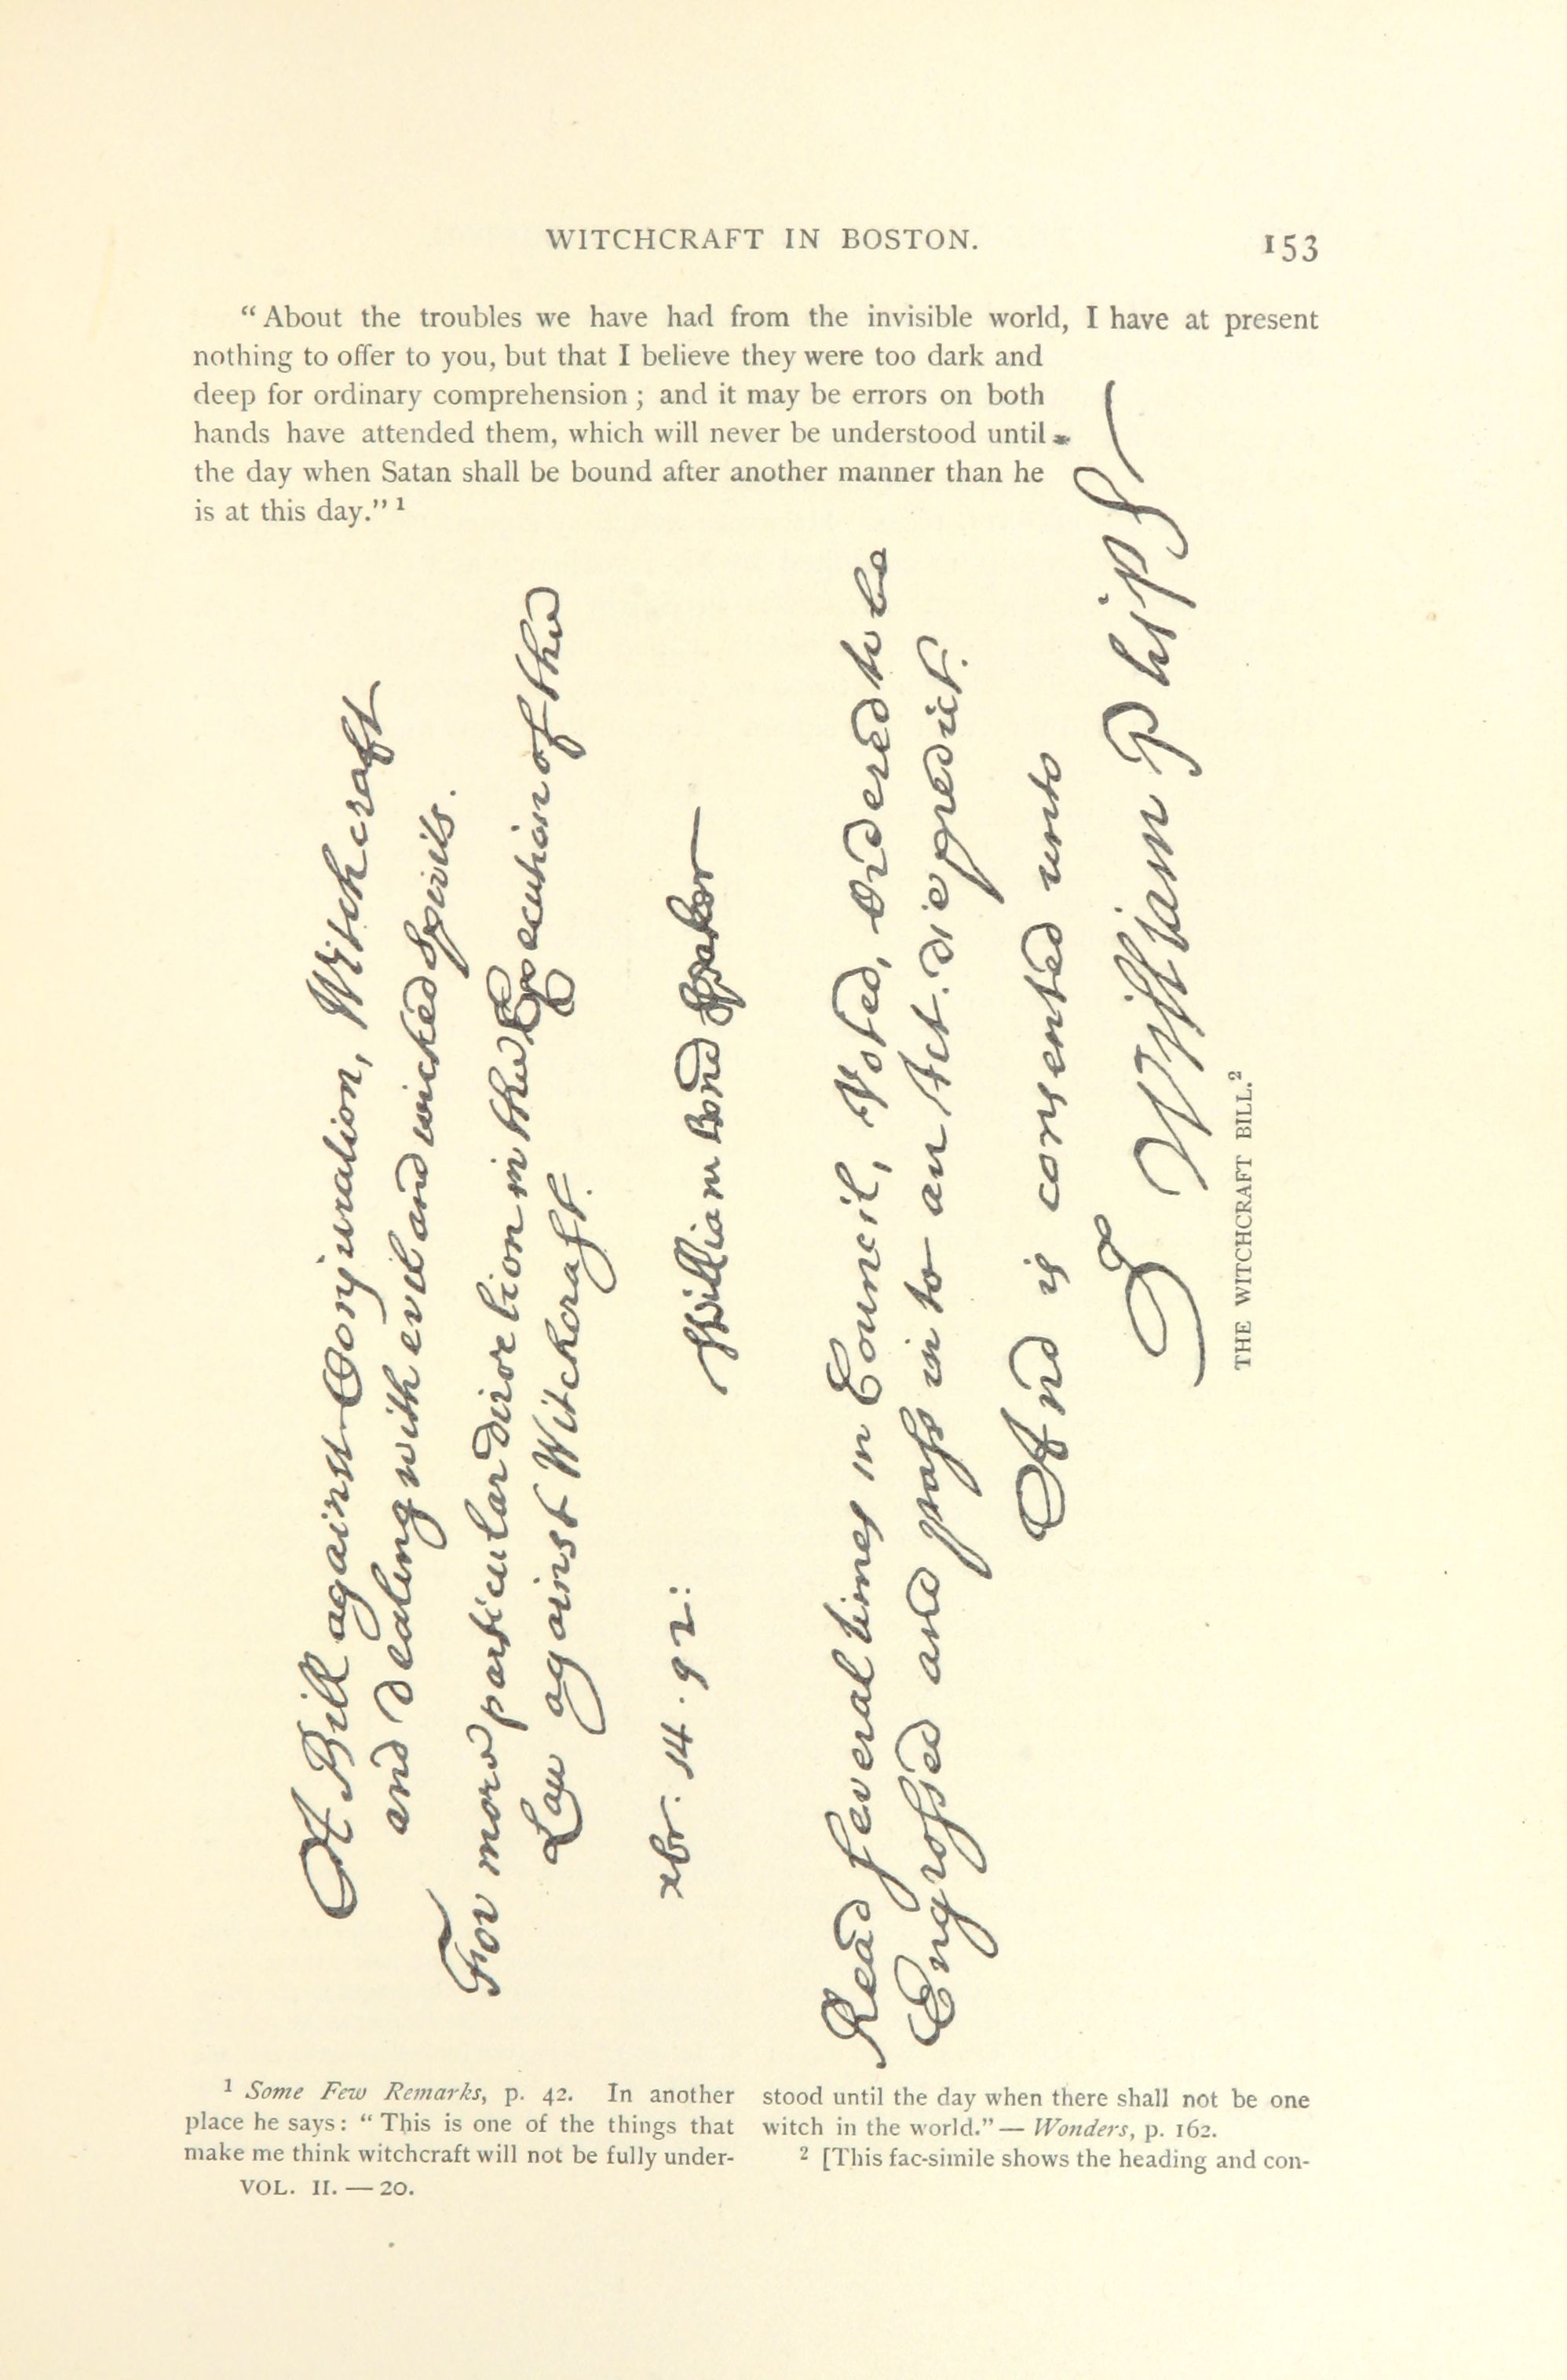 WITCHCRAFT IN BOSTON.
153
“About the troubles we have had from the invisible world, I have at present
nothing to offer to you, but that I believe they were too dark and
deep for ordinary comprehension; and it may be errors on both
hands have attended them, which will never be understood until
the day when Satan shall be bound after another manner than he
is at this day.” 1
A Bill against Conjuration, Witchcraft
and dealing with evil and wicked Spirits.
For more particular direction in the Execution of the
Law against Witchcraft.
xbr. 14. 92:
William Bond Speaker
Read several times in Council, Voted, Ordered to be
Engrossed and pass in to an Act. die predict.
And is consented unto
William Phips
THE WITCHCRAFT BILL.2
1 Some Few Remarks, p. 42. In another
place he says: “This is one of the things that
make me think witchcraft will not be fully under-
VOL. II. — 20.
stood until the day when there shall not be one
witch in the world.” — Wonders, p. 162.
2 [This fac-simile shows the heading and con-